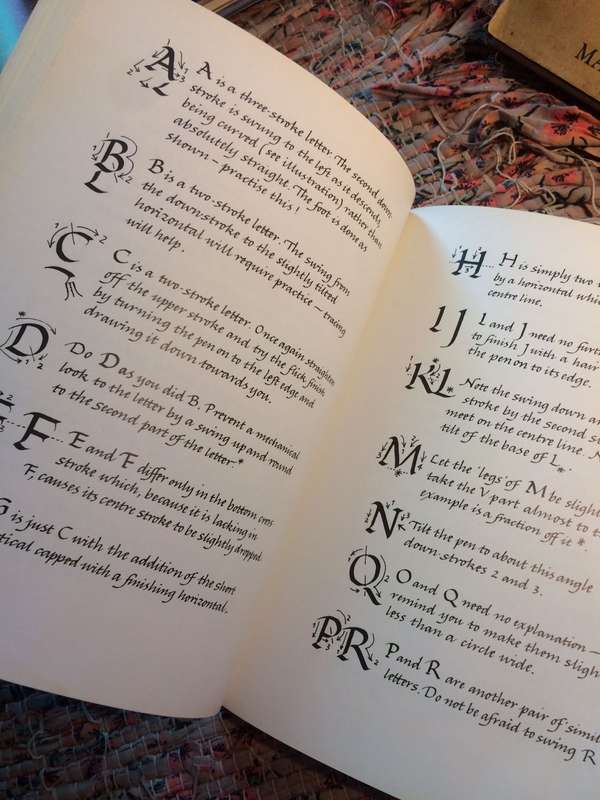 A A is a three-stroke letter. The second, down-
stroke is swung to the left as it descends,
being curved (see illustration) rather than
absolutely straight. The foot is done as
shown – practise this!
B B is a two-stroke letter. The swing from
the down-stroke to the slightly tilted
horizontal will require practice – tracing
will help.
C C is a two-stroke letter. Once again straighten
off the upper stroke and try the flick finish
by turning the pen on to the left edge and
drawing it down towards you.
D Do D as you did B. Prevent a mechanical
look to the letter by a swing up and round
to the second part of the letter.*
F E and F differ only in the bottom cross-
stroke which, because it is lacking in
F, causes its centre stroke to be slightly dropped.
G is just C with the addition of the short
capped with a finishing horizontal.
MA
H H is simply two
by a horizontal
centre line.
I J I and J need no
to finish J with a hair
the pen on to its edge.
KL Note the swing down
stroke by the second
meet on the centre line.
tilt of the base of L.*
M Let the 'legs' of M be
take the V part almost to
example is a fraction off it*.
N Tilt the pen to about this angle
down-strokes 2 and 3.
Q O and Q need no explanation –
remind you to make them
less than a circle wide.
PR P and R are another pair of
letters. Do not be afraid to swing R